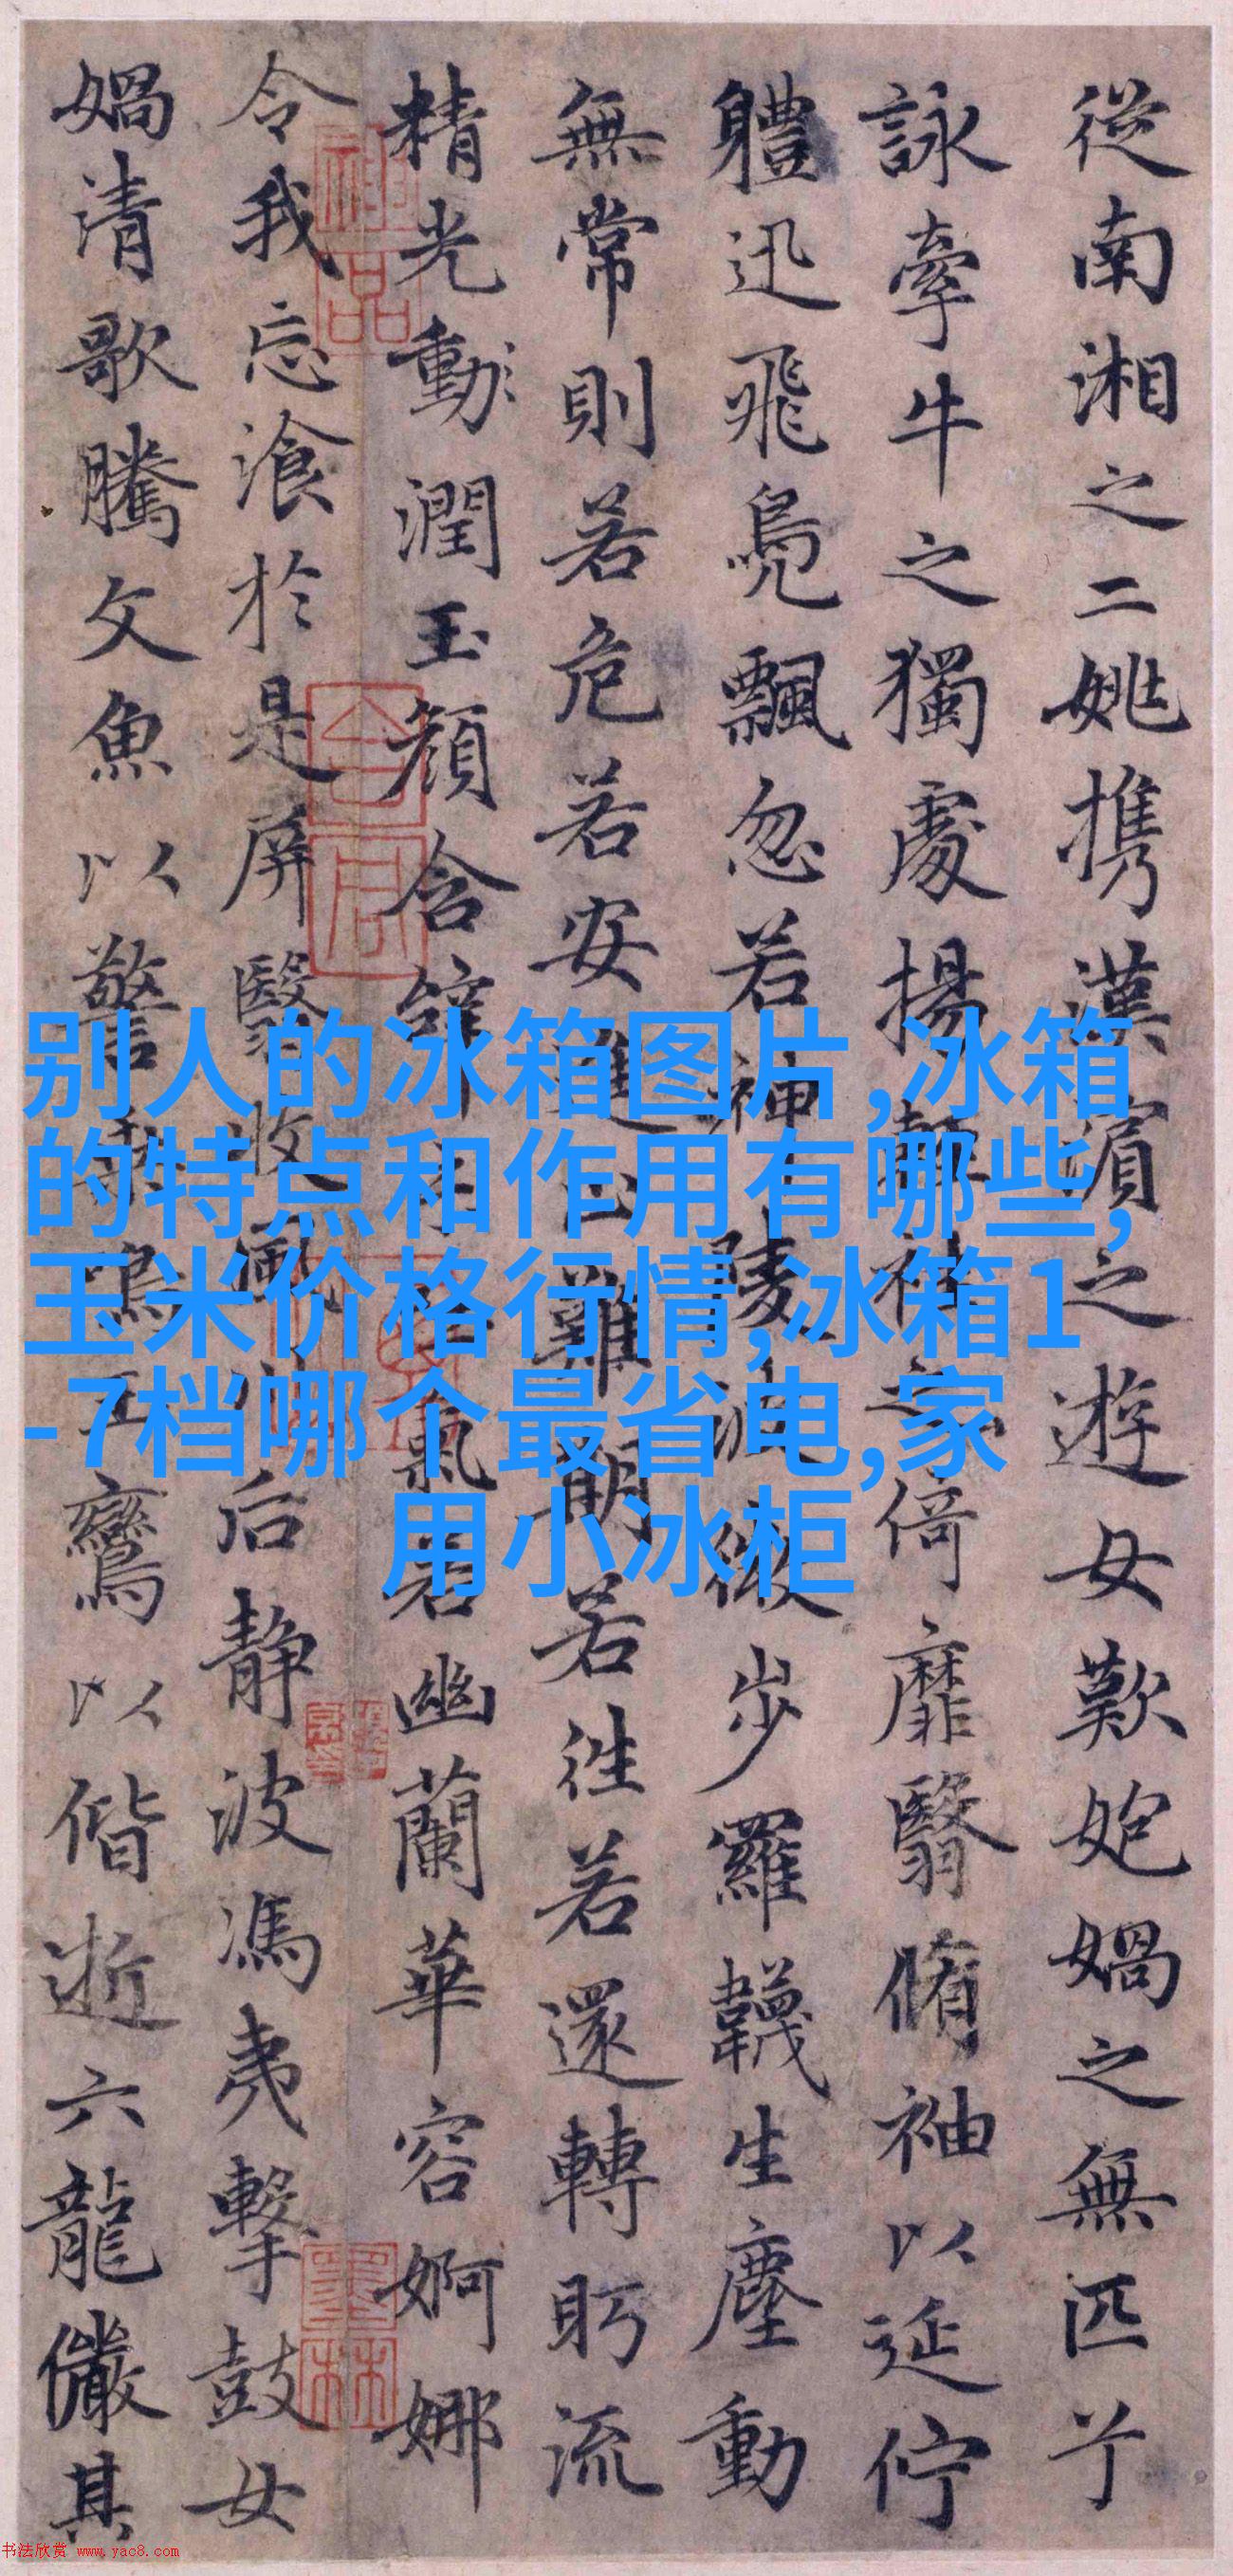 從南湘之二姚携漢濱之遊女歎匏媧之無匹兮
詠牽牛之獨處揚輕袿之倚靡翳脩袖以延佇
軆迅飛鳧飄忽若神陵波微步羅韈生塵動
無常則若危若安進止難期若往若還轉眄流
精光動潤玉顏含辭未吐氣若幽蘭華容婀娜
令我忘飡於是屏翳收風川后静波馮夷擊鼓女
媧清歌騰文魚以警乘鳴玉鸞以偕逝六龍儼其
别人的冰箱图片,冰箱
的特点和作用有哪些,
玉米价格行情,冰箱1
-7档哪个最省电,家
用小冰柜
神品
墨林
书法欣赏 www.yac8.com